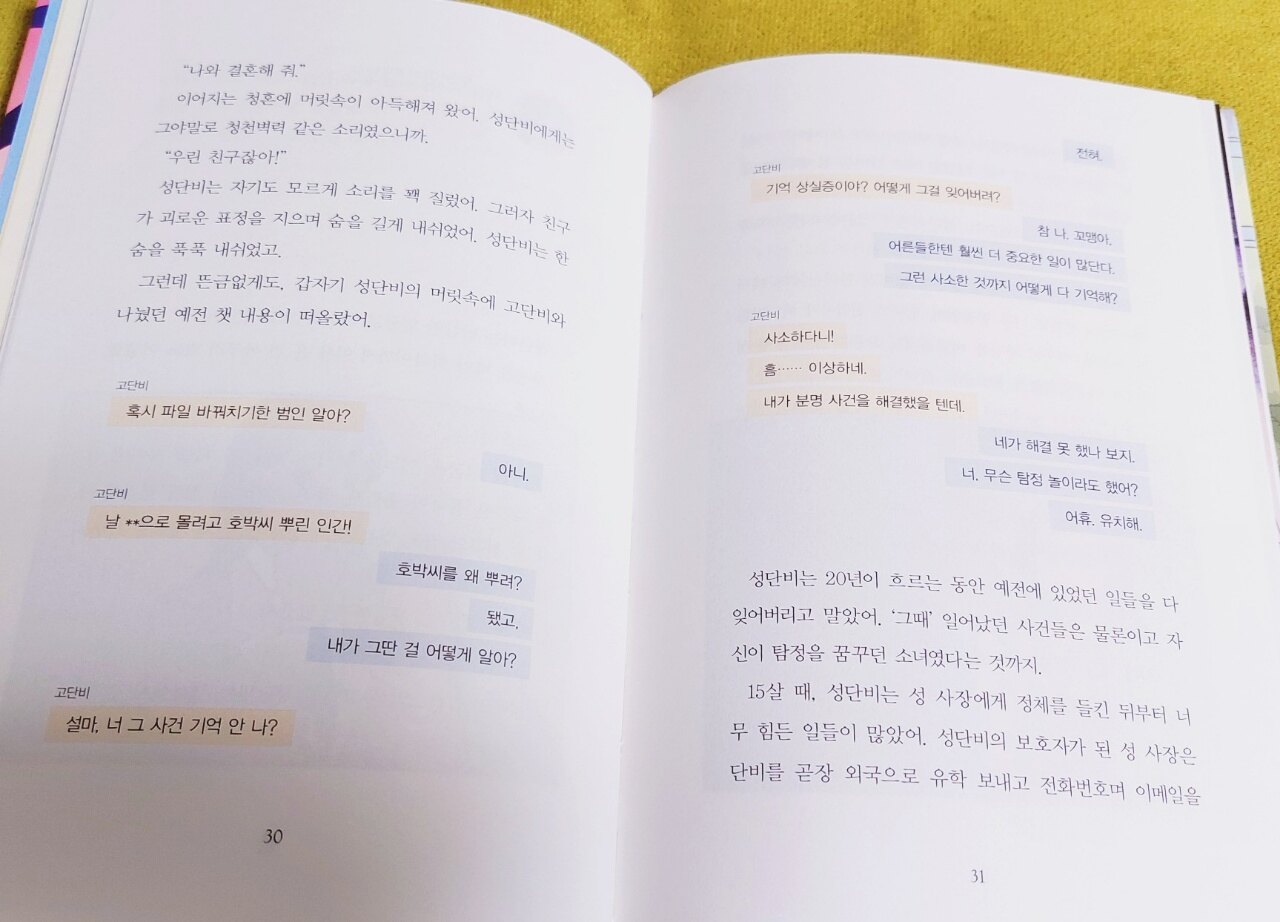 “나와 결혼해 줘.”
이어지는 청혼에 머릿속이 아득해져 왔어. 성단비에게는
그야말로 청천벽력 같은 소리였으니까.
“우린 친구잖아!”
성단비는 자기도 모르게 소리를 꽥 질렀어. 그러자 친구
가 괴로운 표정을 지으며 숨을 길게 내쉬었어. 성단비는 한
숨을 푹푹 내쉬었고.
그런데 뜬금없게도, 갑자기 성단비의 머릿속에 고단비와
나눴던 예전 챗 내용이 떠올랐어.
고단비
혹시 파일 바꿔치기한 범인 알아?
아니.
고단비
날 **으로 몰려고 호박씨 뿌린 인간!
호박씨를 왜 뿌려?
됐고,
내가 그딴 걸 어떻게 알아?
고단비
설마, 너 그 사건 기억 안 나?
30
전혀.
고단비
기억 상실증이야? 어떻게 그걸 잊어버려?
참 나, 꼬맹아.
어른들한텐 훨씬 더 중요한 일이 많단다.
그런 사소한 것까지 어떻게 다 기억해?
고단비
사소하다니!
흠…… 이상하네.
내가 분명 사건을 해결했을 텐데.
네가 해결 못 했나 보지.
너, 무슨 탐정 놀이라도 했어?
어휴, 유치해.
성단비는 20년이 흐르는 동안 예전에 있었던 일들을 다
잊어버리고 말았어. ‘그때’ 일어났던 사건들은 물론이고 자
신이 탐정을 꿈꾸던 소녀였다는 것까지.
15살 때, 성단비는 성 사장에게 정체를 들킨 뒤부터 너
무 힘든 일들이 많았어. 성단비의 보호자가 된 성 사장은
단비를 곧장 외국으로 유학 보내고 전화번호며 이메일을
31